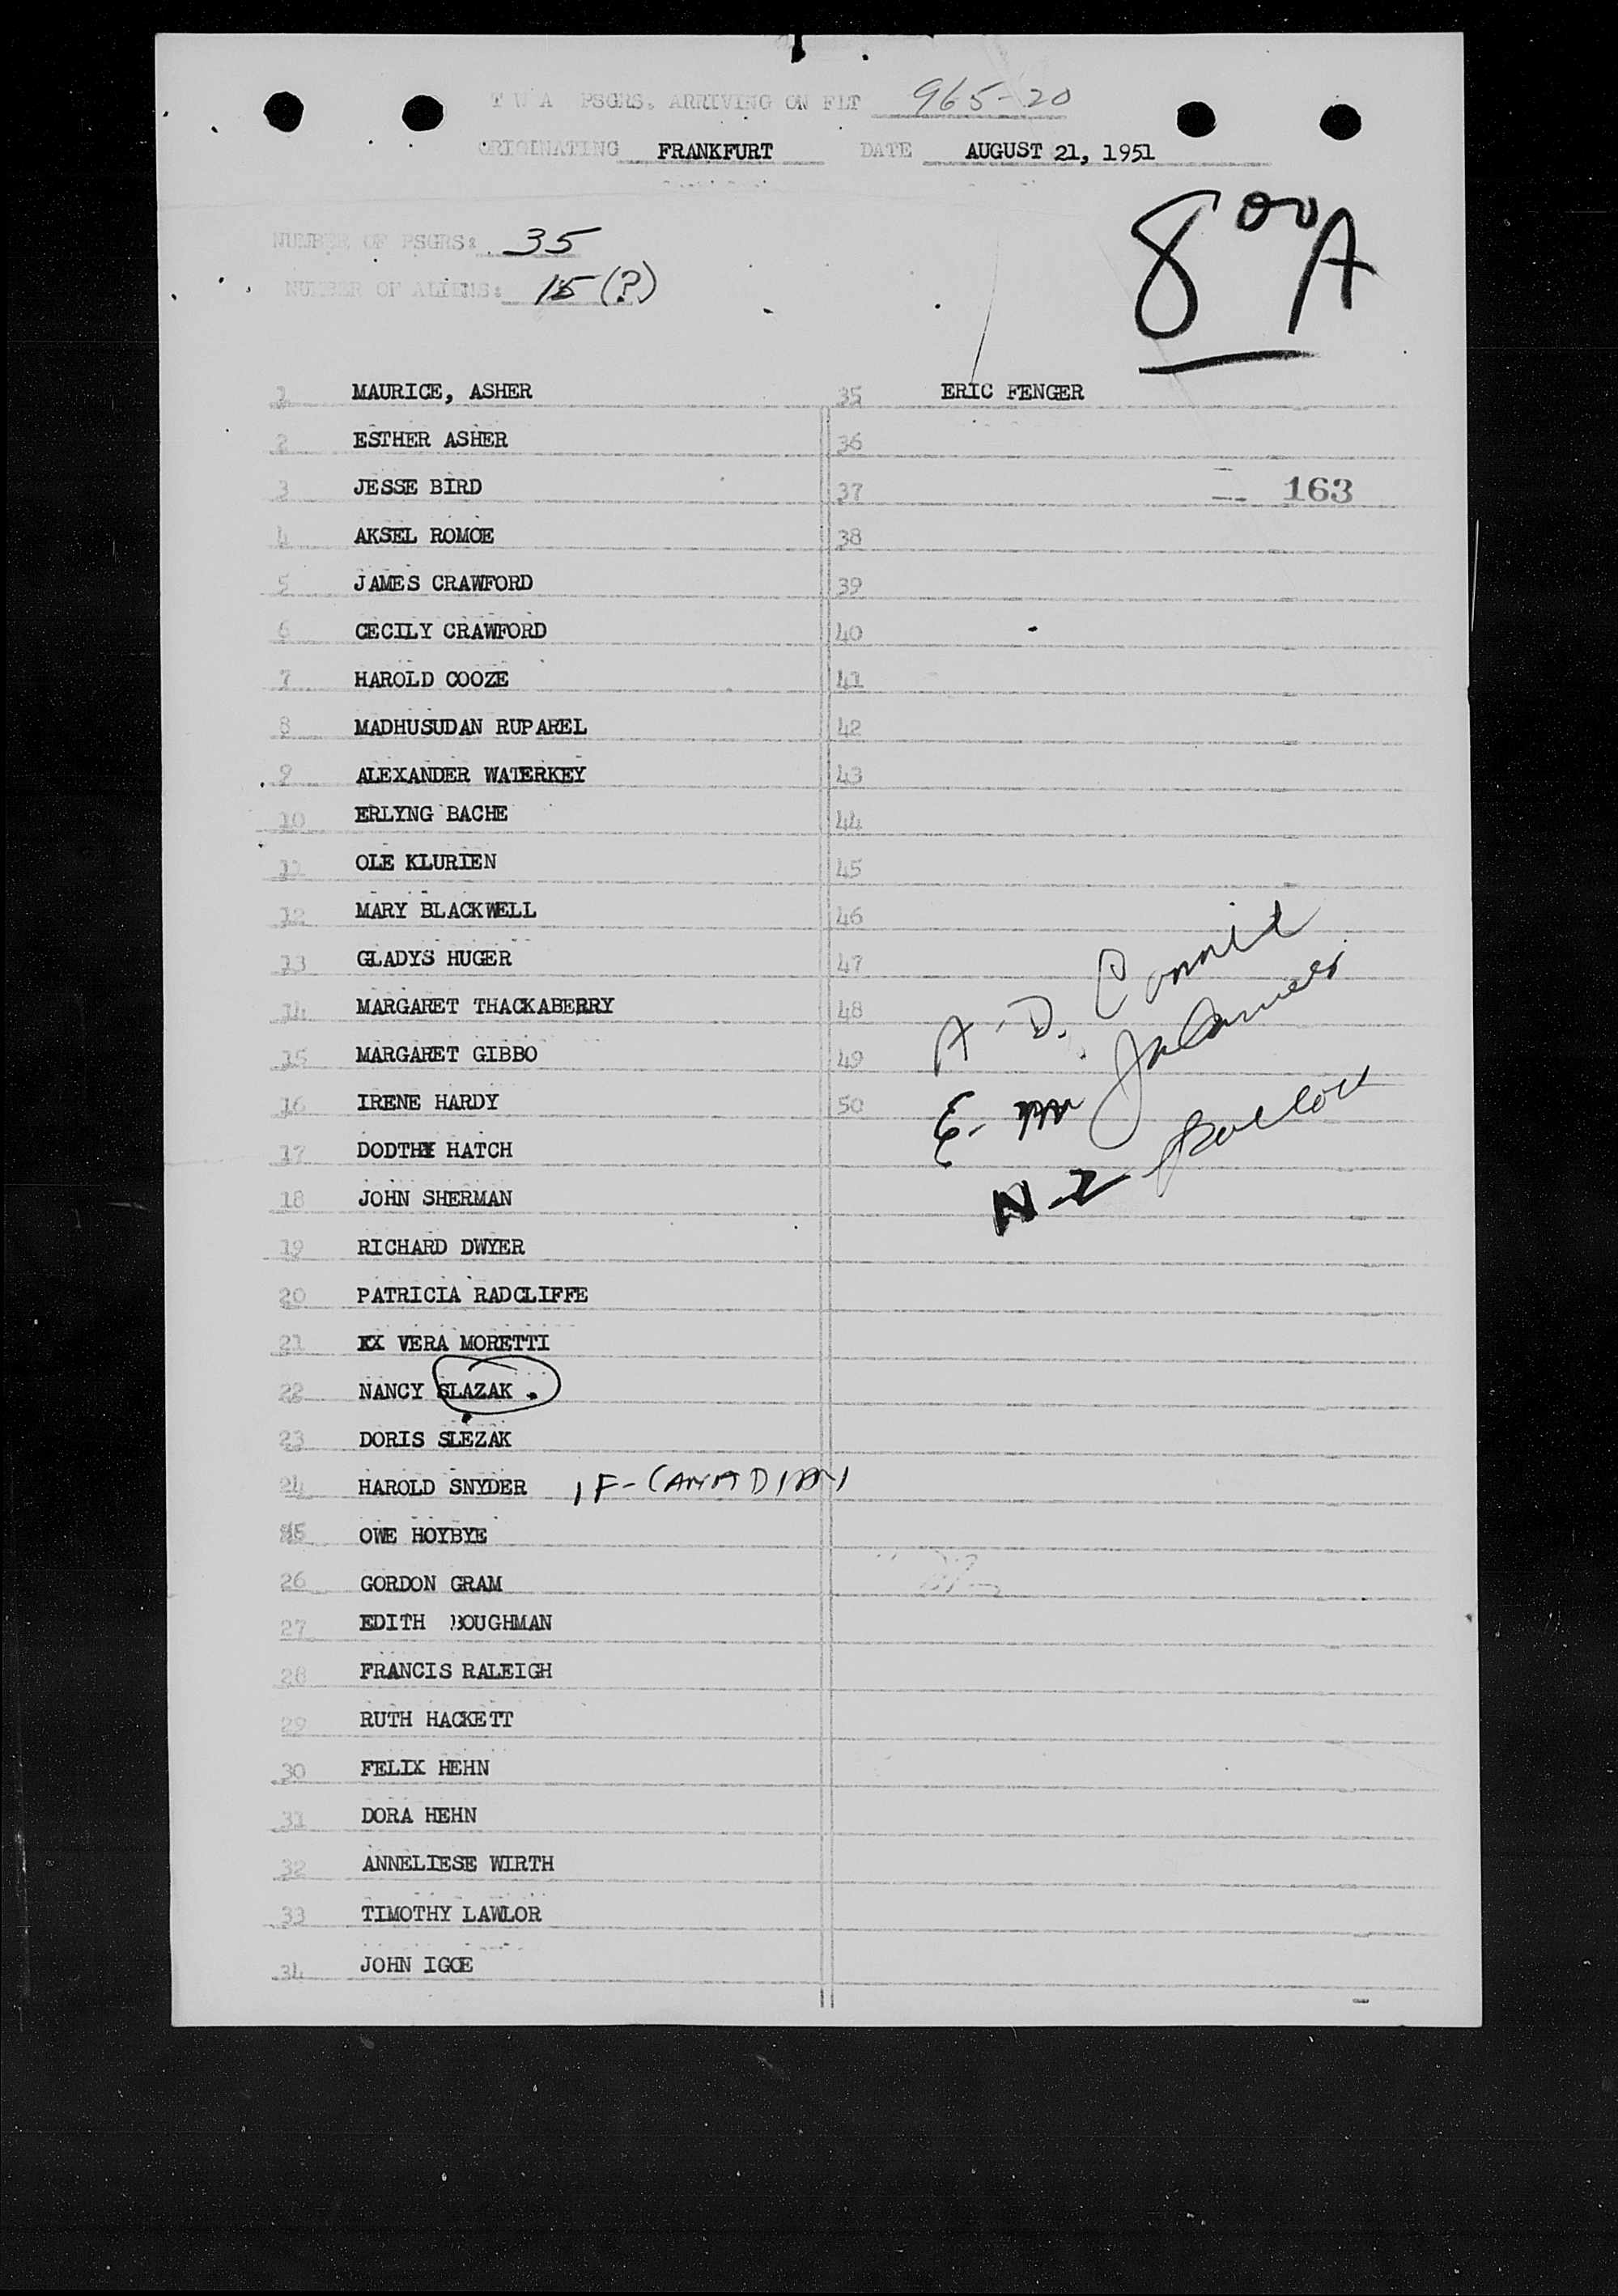 T W A PSGRS. ARRIVING ON FLT 965-20
ORIGINATING FRANKFURT DATE AUGUST 21, 1951
8 00 A
NUMBER OF PSGRS: 35
NUMBER OF ALIENS: 15 (?)
1 MAURICE, ASHER
2 ESTHER ASHER
3 JESSE BIRD
4 AKSEL ROMOE
5 JAMES CRAWFORD
6 CECILY CRAWFORD
7 HAROLD COOZE
8 MADHUSUDAN RUPAREL
9 ALEXANDER WATERKEY
10 ERLYNG BACHE
11 OLE KLURIEN
12 MARY BLACKWELL
13 GLADYS HUGER
14 MARGARET THACKABERRY
15 MARGARET GIBBO
16 IRENE HARDY
17 HATCH
18 JOHN SHERMAN
19 RICHARD DWYER
20 PATRICIA RADCLIFFE
21 VERA MORETTI
22 NANCY SLAZAK
23 DORIS SLEZAK
24 HAROLD SNYDER 1 F-CANADIAN
OWE HOYBYE
26 GORDON GRAM
27 EDITH BOUGHMAN
28 FRANCIS RALEIGH
29 RUTH HACKETT
30 FELIX HEHN
31 DORA HEHN
32 ANNELIESE WIRTH
33 TIMOTHY LAWLOR
34 JOHN IGOE
35 ERIC FENGER
36
37 163
38
39
40
41
42
43
44
45
46
47
48
49
50
A-D.
E-
N-Z